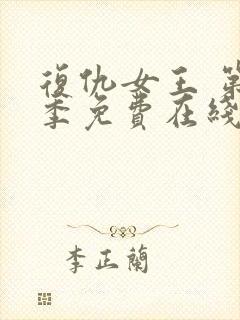 復仇女王 第
季免費在綫
李正蘭